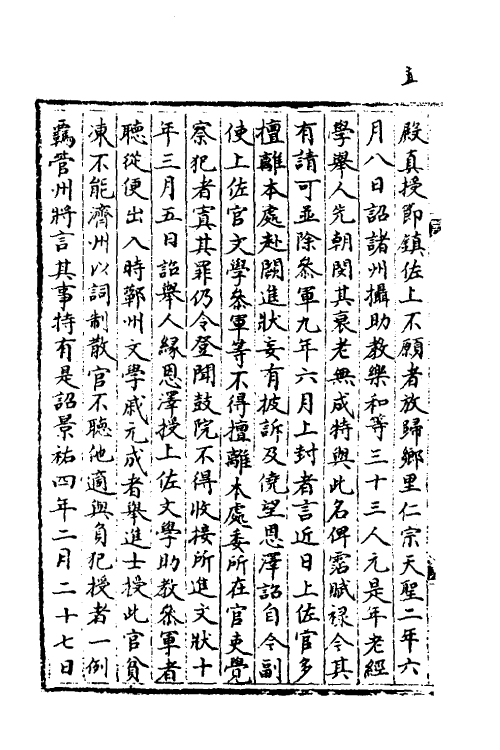 殿真授節鎮佐上不願者放歸鄉里仁宗天聖二年六
月八日詔諸州攝助教樂和等三十三人元是年老經
學舉人先朝閔其衰老無成特與此名俾霑賦祿今其
有請可並除參軍九年六月上封者言近日上佐官多
擅離本處赴闕進狀妄有披訴及僥望恩澤詔自今副
使上佐官文學參軍等不得擅離本處委所在官吏覺
察犯者寘其罪仍令登聞鼓院不得收接所進文狀十
年三月五日詔舉人緣恩澤授上佐文學助教參軍者
聽從便出入時鄆州文學戚元成者舉進士授此官貧
凍不能濟州以詞制散官不聽他適與負犯授者一例
羈管州將言其事特有是詔景祐四年二月二十七日